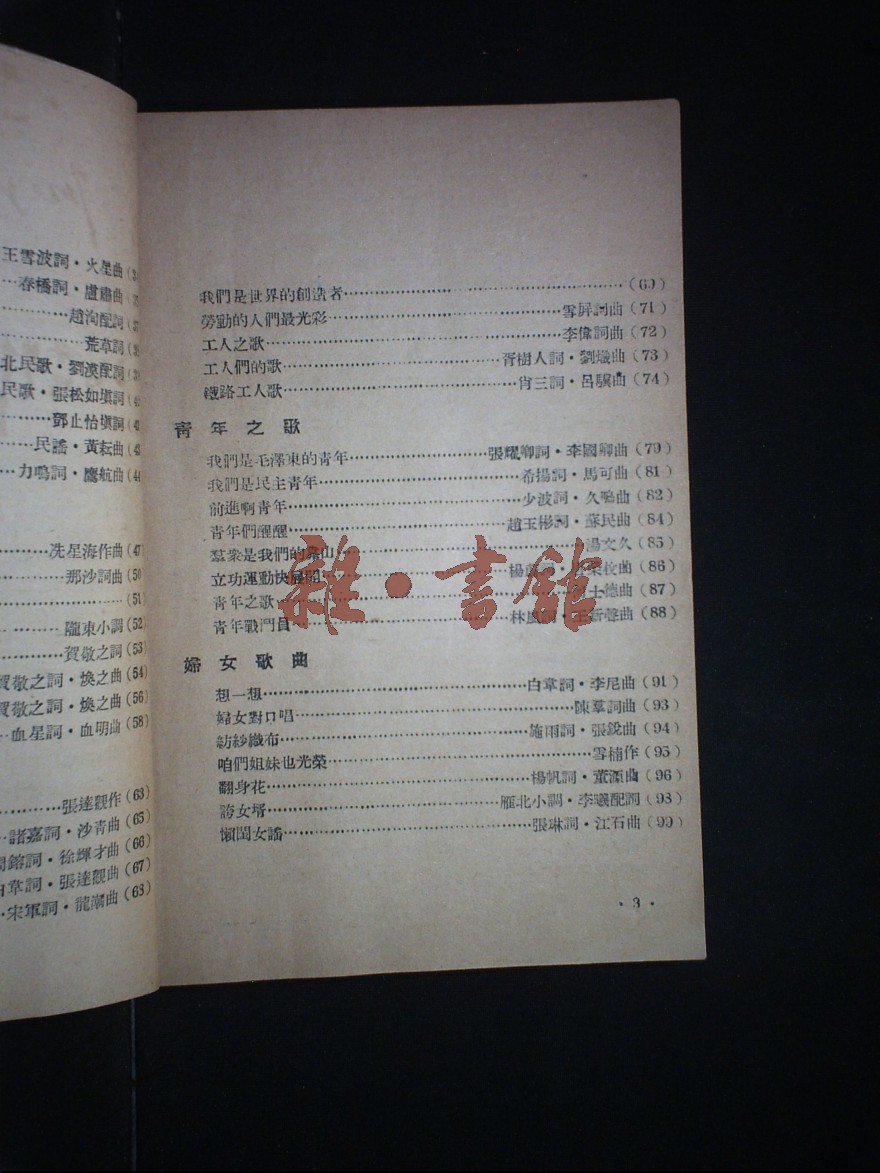 王雪波詞・火星曲
春橋詞・盧肅曲
趙洵配詞
荒草詞
北民歌・劉漠配詞
民歌・張松如塡詞
鄧止怡塡詞
民謠・黃耘曲(43
力鳴詞・鷹航曲(44
冼星海作曲(47
那沙詞曲(50
(51)
隴東小調(52)
賀敬之詞(53)
賀敬之詞・煥之曲(54)
賀敬之詞・煥之曲(56)
血星詞・血明曲(58)
張達觀作(63)
諸嘉詞・沙靑曲(65)
鎔詞・徐輝才曲(66)
白韋詞・張達觀曲(67)
宋軍詞・龍潮曲(68)
我們是世界的創造者……(69)
勞動的人們最光彩……雪屏詞曲(71)
工人之歌……李偉詞曲(72)
工人們的歌……胥樹人詞・劉熾曲(73)
鐵路工人歌……肖三詞・呂驥曲(74)
靑年之歌
我們是毛澤東的靑年……張耀卿詞・李國卿曲(79)
我們是民主靑年……希揚詞・馬可曲(81)
前進啊靑年……少波詞・久鳴曲(82)
靑年們醒醒……趙玉彬詞・蘇民曲(84)
羣衆是我們的靠山……湯文久(85)
立功運動快展開……楊 枚曲(86)
靑年之歌……士德曲(87)
靑年戰鬥員……林風 ・王新聲曲(88)
雜・書館
婦女歌曲
想一想……白韋詞・李尼曲(91)
婦女對口唱……陳羣詞曲(93)
紡紗織布……施雨詞・張銳曲(94)
咱們姐妹也光榮……雪楠作(95)
翻身花……楊帆詞・董源曲(96)
誇女壻……雁北小調・李曦配詞(98)
懶閨女謠……張琳詞・江石曲(99)
・3・